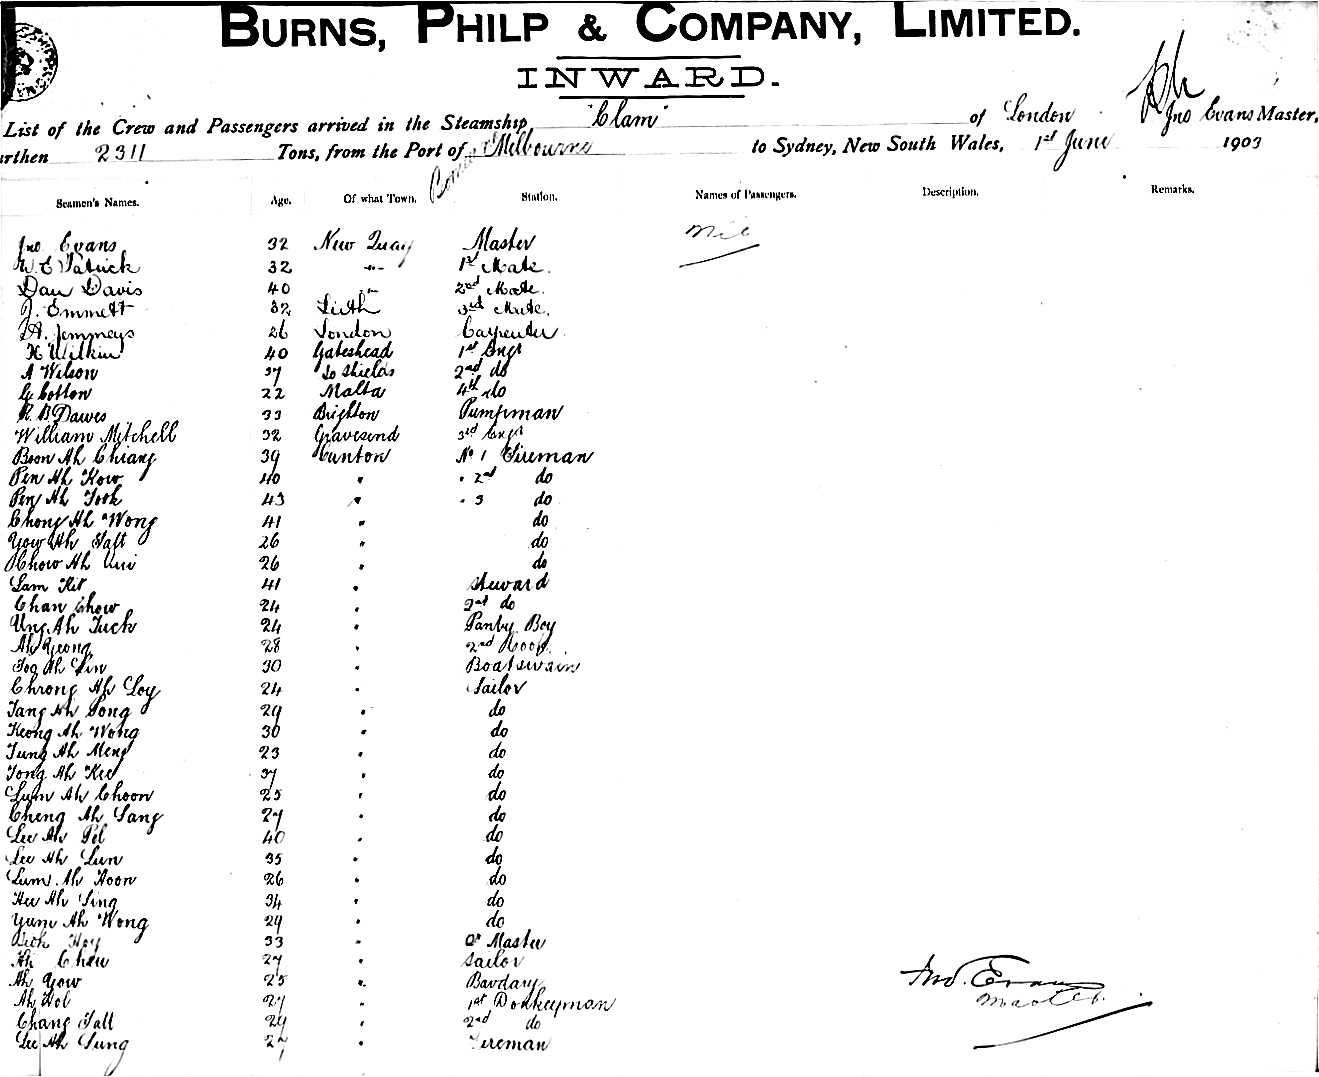 BURNS, PHILP & COMPANY, LIMITED.
INWARD.
List of the Crew and Passengers arrived in the Steamship "Clam" of London Jno Evans Master,
rthen 2311 Tons, from the Port of Melbourne to Sydney, New South Wales, 1st June 1903
Seamen's Names. Age. Of what Town. Station. Names of Passengers. Description. Remarks.
Jno Evans 32 New Quay Master Nil
W. E Patrick 32 -"- 1st Mate.
Dan Davis 40 -"- 2nd Mate.
J. Emmett 32 Leith 3rd Mate.
A. Jemmeys 26 London Carpenter
H Wilkin 40 Gateshead 1st Engr
A Wilson 37 So Shields 2nd do
G Cotton 22 Malta 4th do
R. B Dawes 33 Brighton Pumpman
William Mitchell 32 Gravesend 3rd Engr
Boon Ah Chiang 39 Canton No 1 Fireman
Pen Ah Kow 40 " " 2nd do
Pen Ah Took 43 " " 3 do
Chong Ah Wong 41 " do
Yow Ah Fatt 26 " do
Chow Ah 26 " do
Lam Kit 41 " Steward
Chan Chow 24 " 2nd do
Ung Ah Tuck 24 " Pantry Boy
Ah Yeong 28 " 2nd Cook.
Foo Ah Lin 30 " Boatswain
Chrong Ah Loy 24 " Sailor
Tang Ah Song 29 " do
Keong Ah Wong 30 " do
Tung Ah Meng 23 " do
Tong Ah Kee 37 " do
Lum Ah Choon 25 " do
Cheng Ah Sang 27 " do
Lee Ah Pel 40 " do
Lee Ah Lun 35 " do
Lum Ah Hoon 26 " do
Hu Ah Sing 34 " do
Yum Ah Wong 29 " do
Hoy 33 " Qr Master
Ah Chew 27 " Sailor
Ah Yow 25 "
Ah Hol 27 " 1st Donkeyman
Chang Fatt 29 " 2nd do
Lee Ah Sung 27 " Fireman
Jno. Evans
Master.